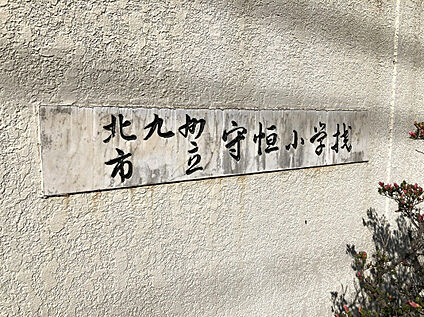 北九州市立守恒小学校